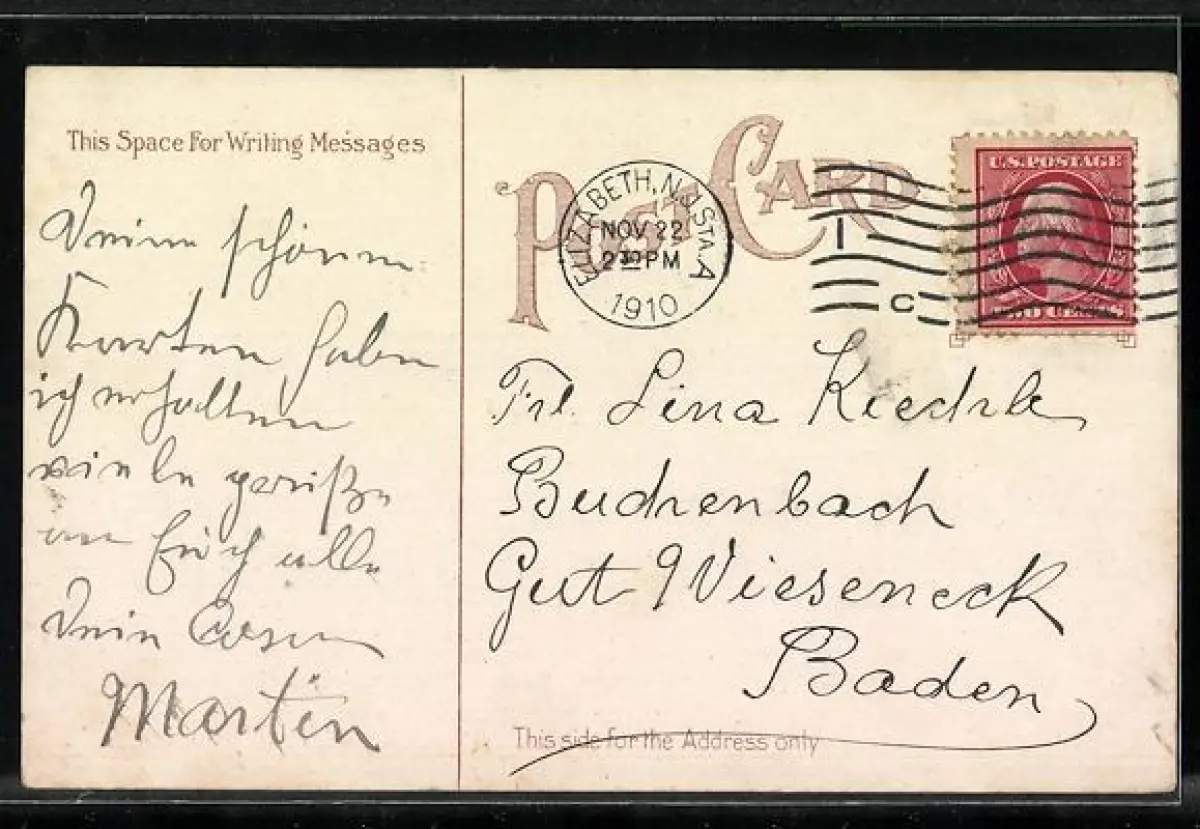 This Space For Writing Messages
Deine schönen
Karten habe
ich erhalten
viele
an Euch alle
Dein
Martin
POST CARD
ELIZABETH, N.J. STA. A
NOV 22
2 30 PM
1910
1
C
U.S. POSTAGE
TWO CENTS
Frl. Lina
Buchenbach
Gut Wieseneck
Baden
This side for the Address only